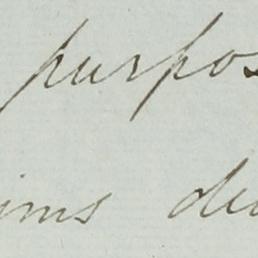 purpos
ims de